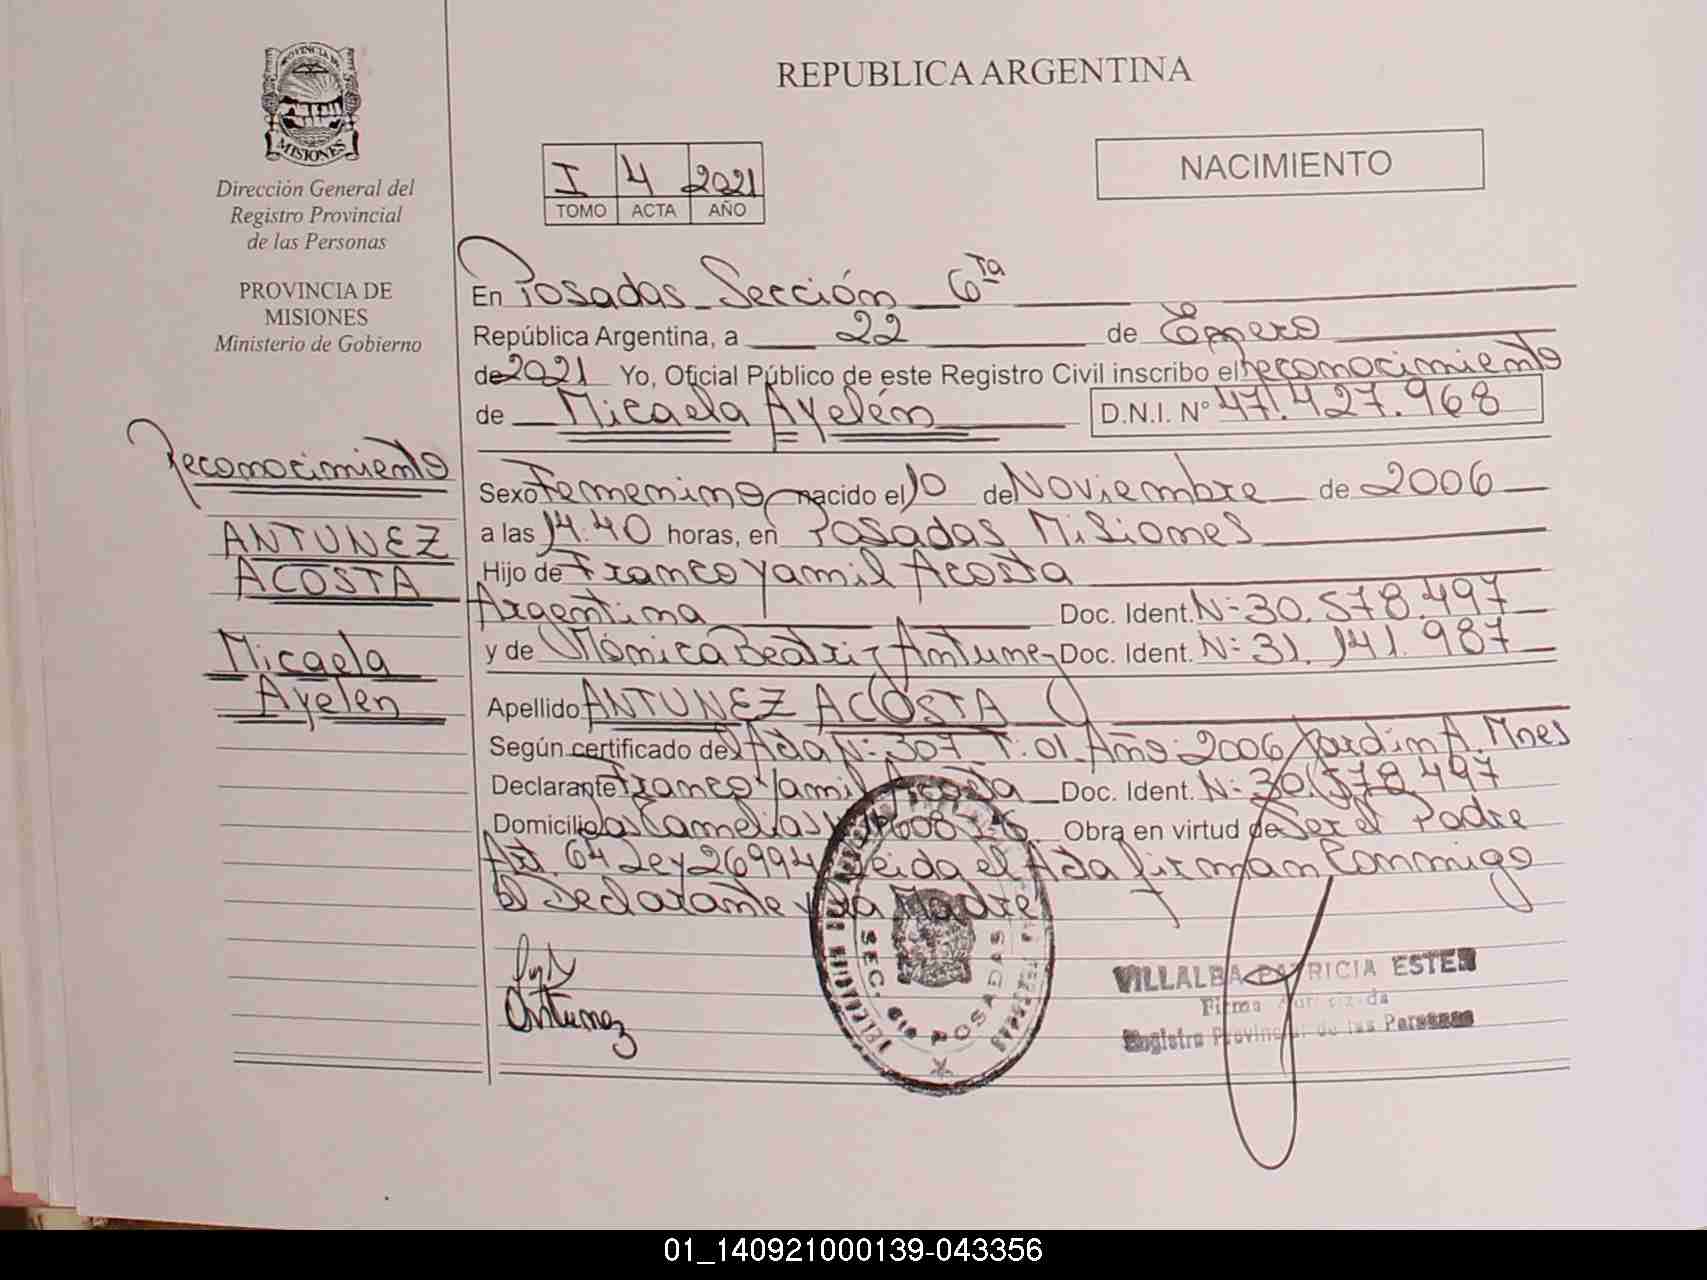 REPUBLICA ARGENTINA
PROVINCIA DE MISIONES
Dirección General del
Registro Provincial
de las Personas
PROVINCIA DE
MISIONES
Ministerio de Gobierno
I 4 2021
TOMO ACTA AÑO
NACIMIENTO
Reconocimiento
ANTUNEZ
ACOSTA
Micaela
Ayelen
En Posadas Sección 6ta
República Argentina, a 22 de Enero
de 2021 Yo, Oficial Público de este Registro Civil inscribo el reconocimiento
de Micaela Ayelén D.N.I. N° 47.427.968
Sexo Femenino nacido el 10 de Noviembre de 2006
a las 14:40 horas, en Posadas Misiones
Hijo de Franco Yamil Acosta
Argentina Doc. Ident. N: 30.578.497
y de Mónica Beatriz Antunez Doc. Ident. N: 31.141.987
Apellido ANTUNEZ ACOSTA
Según certificado de Acta N: 307 T: 01 Año: 2006 Jardin A. Mnes
Declarante Franco Yamil Acosta Doc. Ident. N: 30.578.497
Domicilio Las Camelias Obra en virtud de Ser el Padre
Art. 64 Ley 26994 Leida el Acta firman Conmigo
El Declarante y la Madre
Antunez
SEC. 6ta POSADAS
VILLALBA PATRICIA ESTER
Firma Autorizada
Registro Provincial de las Personas
01_140921000139-043356